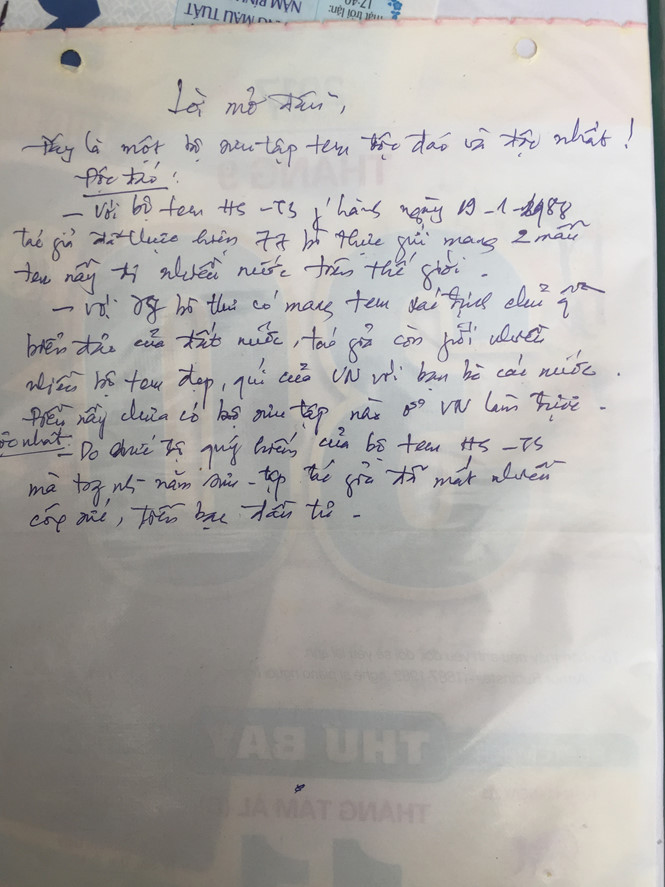 NG MẬU TUẤT
NĂM BÍNH
mặt trời lặn:
17:40
Lời mở đầu,
Đây là một bộ sưu tập tem độc đáo và độc nhất!
Độc đáo:
- Với bộ tem HS-TS p/hành ngày 19-1-1988
tác giả đã thực hiện 77 bì thực gửi mang 2 mẫu
tem nầy đi nhiều nước trên thế giới.
- Với bộ thư có mang tem xác định chủ q
biển đảo của đất nước, tác giả còn gửi nhiều
nhiều bộ tem đẹp, quí của VN với bạn bè các nước.
Điều nầy chưa có bộ sưu tập nào ở VN làm được.
Độc nhất - Do mức độ quý hiếm của bộ tem HS-TS
mà tog nh năm sưu tập tác giả đã mất nhiều
công sức, tiền bạc đầu tư.
2017
THÁNG 9
30
THỨ BẢY
THÁNG TÁM ÂL
11